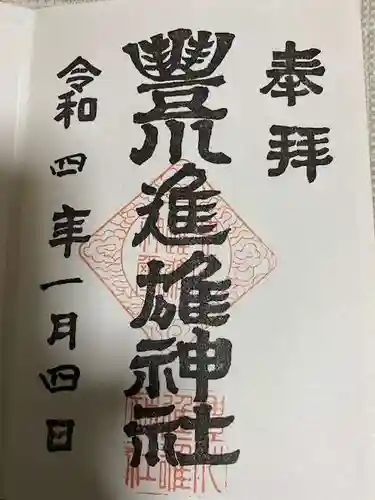 奉拝
豊川進雄神社
令和四年一月四日